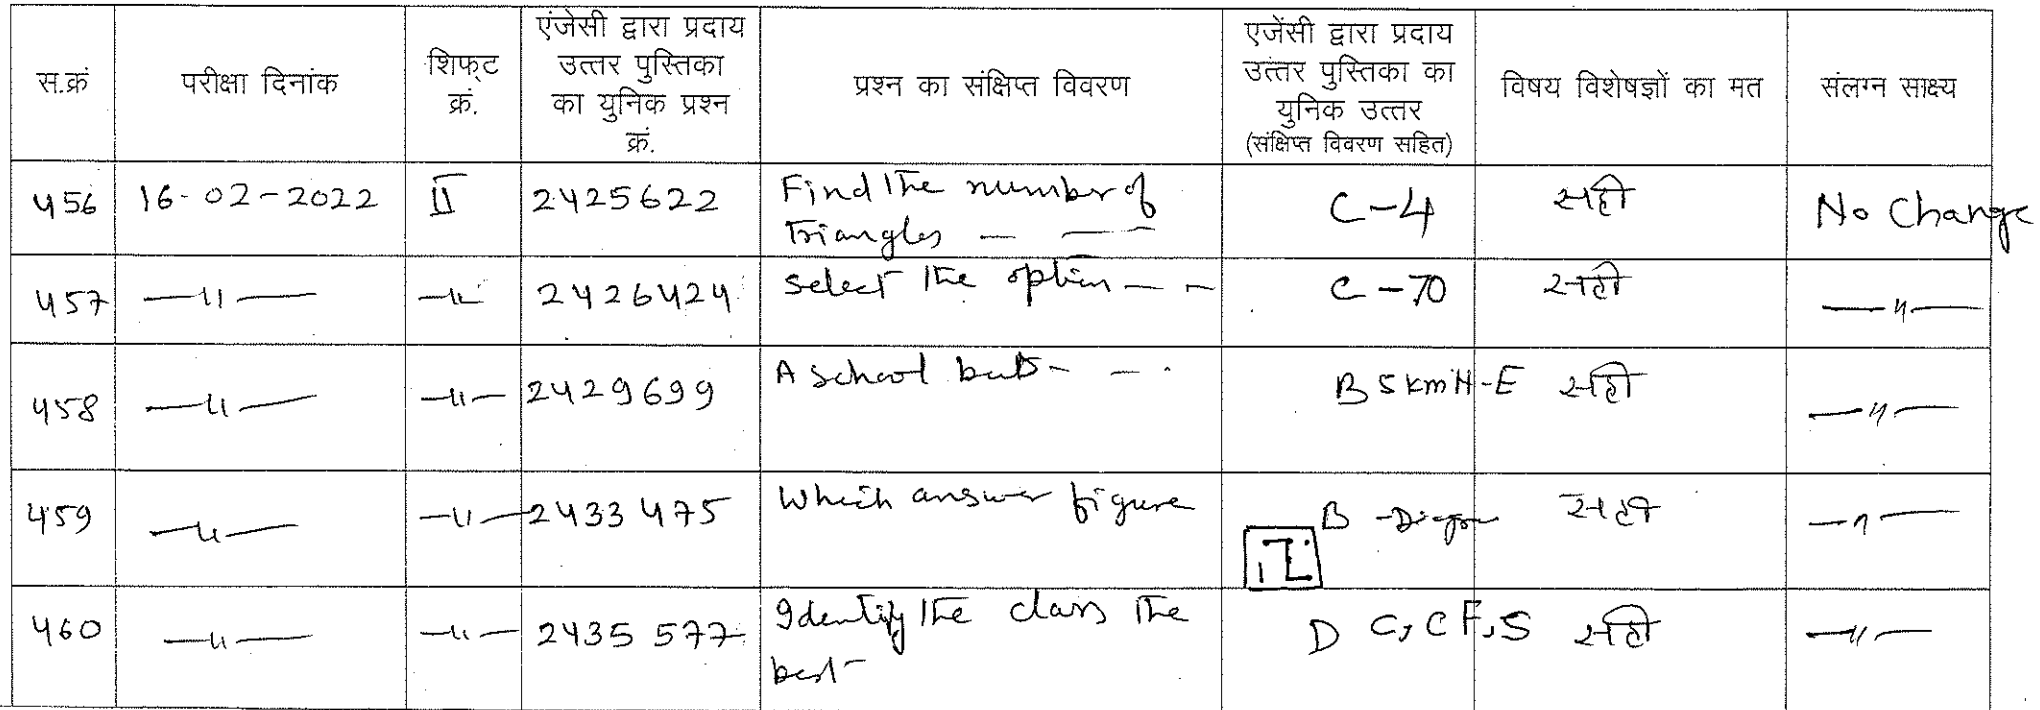 स.क्रं परीक्षा दिनांक शिफ्ट क्रं. एंजेसी द्वारा प्रदाय उत्तर पुस्तिका का युनिक प्रश्न क्रं. प्रश्न का संक्षिप्त विवरण एजेंसी द्वारा प्रदाय उत्तर पुस्तिका का युनिक उत्तर (संक्षिप्त विवरण सहित) विषय विशेषज्ञों का मत संलग्न साक्ष्य
456 16-02-2022 II 2425622 Find the number of Triangles — — C-4 सही No Change
457 —"— —"— 2426424 Select the option — - C-70 सही —"—
458 —"— —"— 2429699 A school - - . B 5 km सही —"—
459 —"— —"— 2433475 Which answer figure B - सही —"—
460 —"— —"— 2435577 Identify the class the best - D C, C F, S सही —"—